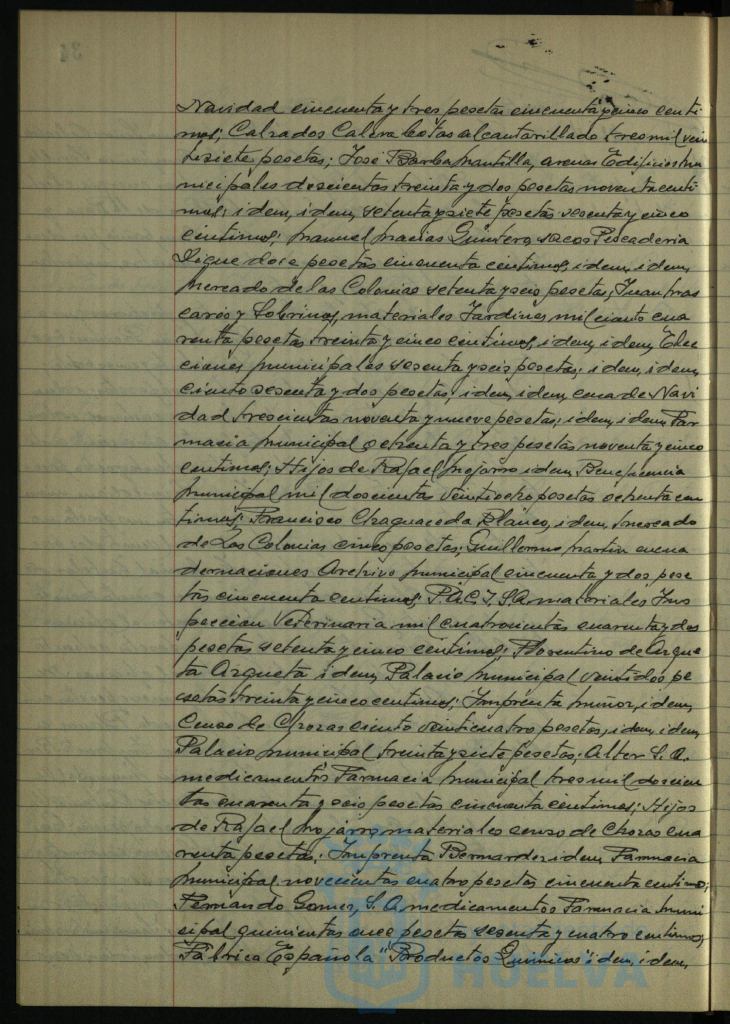 Navidad cincuenta y tres pesetas cincuenta y cinco centi
mos; Calzados Calera botas alcantarillado tres mil vein
tisiete pesetas; José Barba Mantilla, arenas Edificios Mu
nicipales doscientas treinta y dos pesetas noventa centi
mos; idem, idem, setenta y siete pesetas sesenta y cinco
centimos; Manuel Macias Quintero, sacos Pescaderia
Sigue doce pesetas cincuenta centimos, idem, idem,
Mercado de las Colonias setenta y seis pesetas; Juan Mas
caros y Sobrinos, materiales Jardines mil ciento cua
renta pesetas treinta y cinco centimos, idem, idem, Elec
ciones Municipales sesenta y seis pesetas; idem, idem,
ciento sesenta y dos pesetas, idem, idem, cena de Navi
dad trescientas noventa y nueve pesetas; idem, idem, Far
macia Municipal ochenta y tres pesetas noventa y cinco
centimos; Hijos de Rafael Mojarro idem, Beneficencia
Municipal mil doscientas veintiocho pesetas ochenta cen
timos; Francisco Chaguaceda Blanco, idem, Mercado
de Las Colonias cinco pesetas; Guillermo Martin encua
dernaciones Archivo Municipal cincuenta y dos pese
tas cincuenta centimos; P.A.C.I. S.A. materiales Ins
peccion Veterinaria mil cuatrocientas cuarenta y dos
pesetas setenta y cinco centimos; Florentino de Azque
ta Azqueta idem, Palacio Municipal veintidos pe
setas treinta y cinco centimos; Imprenta Muñoz, idem,
Censo de Chozas ciento veinticuatro pesetas, idem, idem,
Palacio Municipal treinta y siete pesetas; Alter S. A.
medicamentos Farmacia Municipal tres mil doscien
tas cuarenta y seis pesetas cincuenta centimos; Hijos
de Rafael Mojarro, materiales censo de Chozas cua
renta pesetas; Imprenta Bernardez idem, Farmacia
Municipal, novecientas cuatro pesetas cincuenta centimos;
Fernando Gomez, S. A. medicamentos Farmacia Muni
cipal quinientas once pesetas sesenta y cuatro centimos,
Fábrica Española "Productos Quimicos" idem, idem,
HUELVA